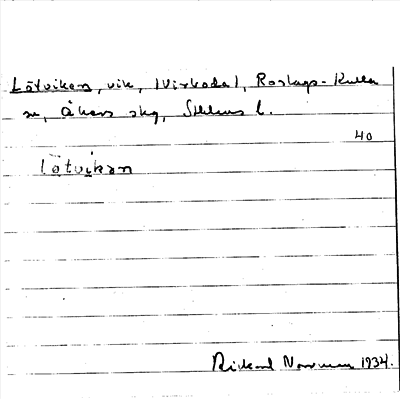 Lötviken, vik, (Virboda), Roslags-Kulla
sn, Åkers skg, Sthlms l.
40
lötvikən
Rickard Norrman 1934.